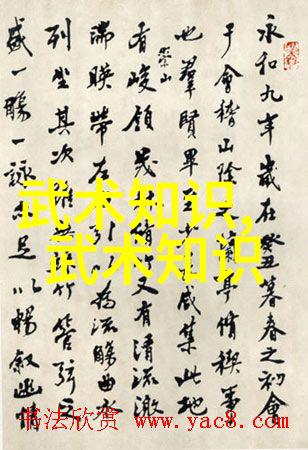 永和九年歲在癸丑暮春之初會
于會稽山陰之蘭亭脩禊事
也羣賢畢至少長咸集此地
有崇山峻領茂林脩竹又有清流激
湍暎帶左右引以為流觴曲水
列坐其次雖無絲竹管弦之
盛一觴一詠亦足以暢敘幽情
武术知识,
武术知识
书法欣赏 www.yac8.com